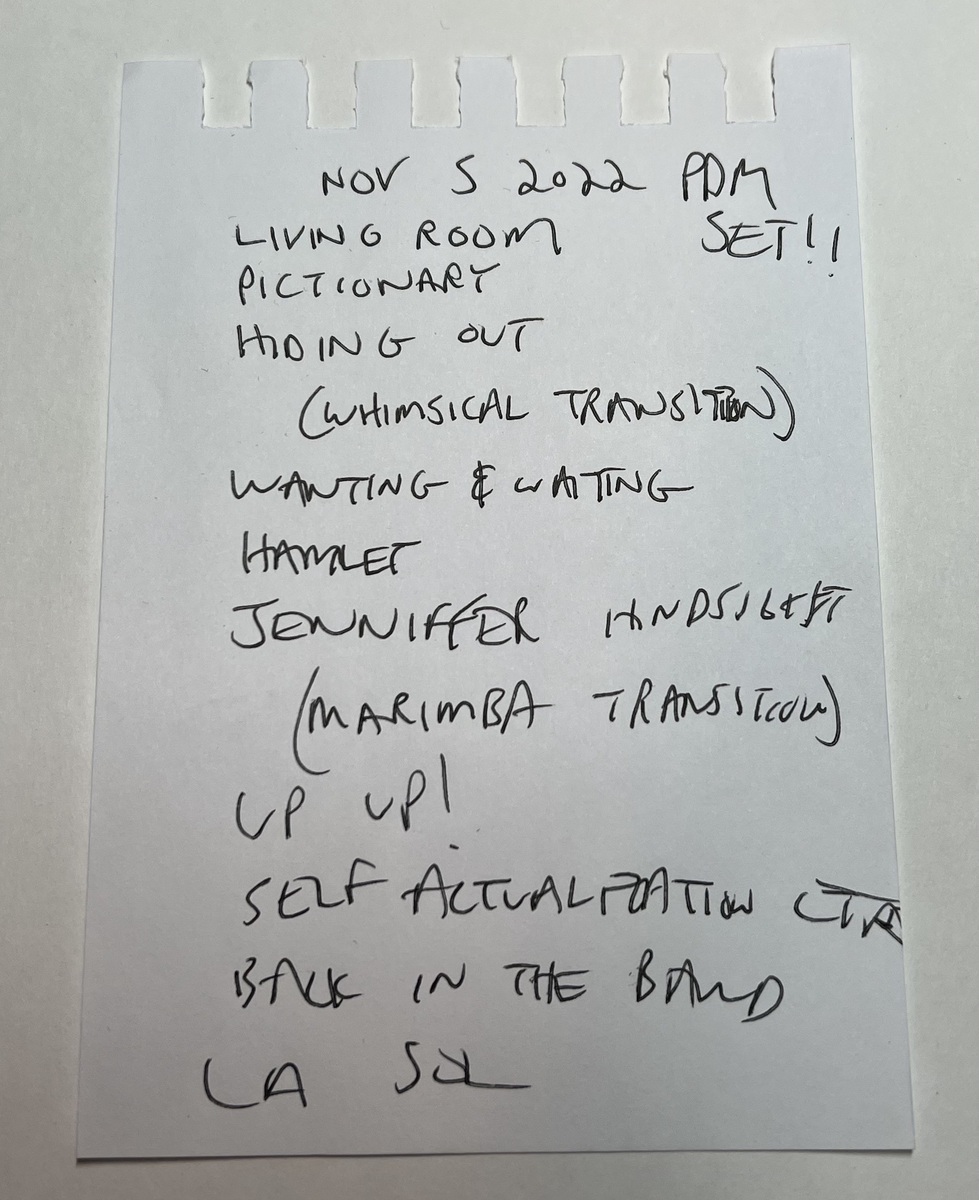 NOV 5 2022 PDM
SET!!
LIVING ROOM
PICTIONARY
HIDING OUT
(WHIMSICAL TRANSITION)
WANTING & WAITING
HAMLET
JENNIFFER HINDSIGHT
(MARIMBA TRANSITION)
UP UP!
SELF ACTUALIZATION CTR
BACK IN THE BAND
LA SOL